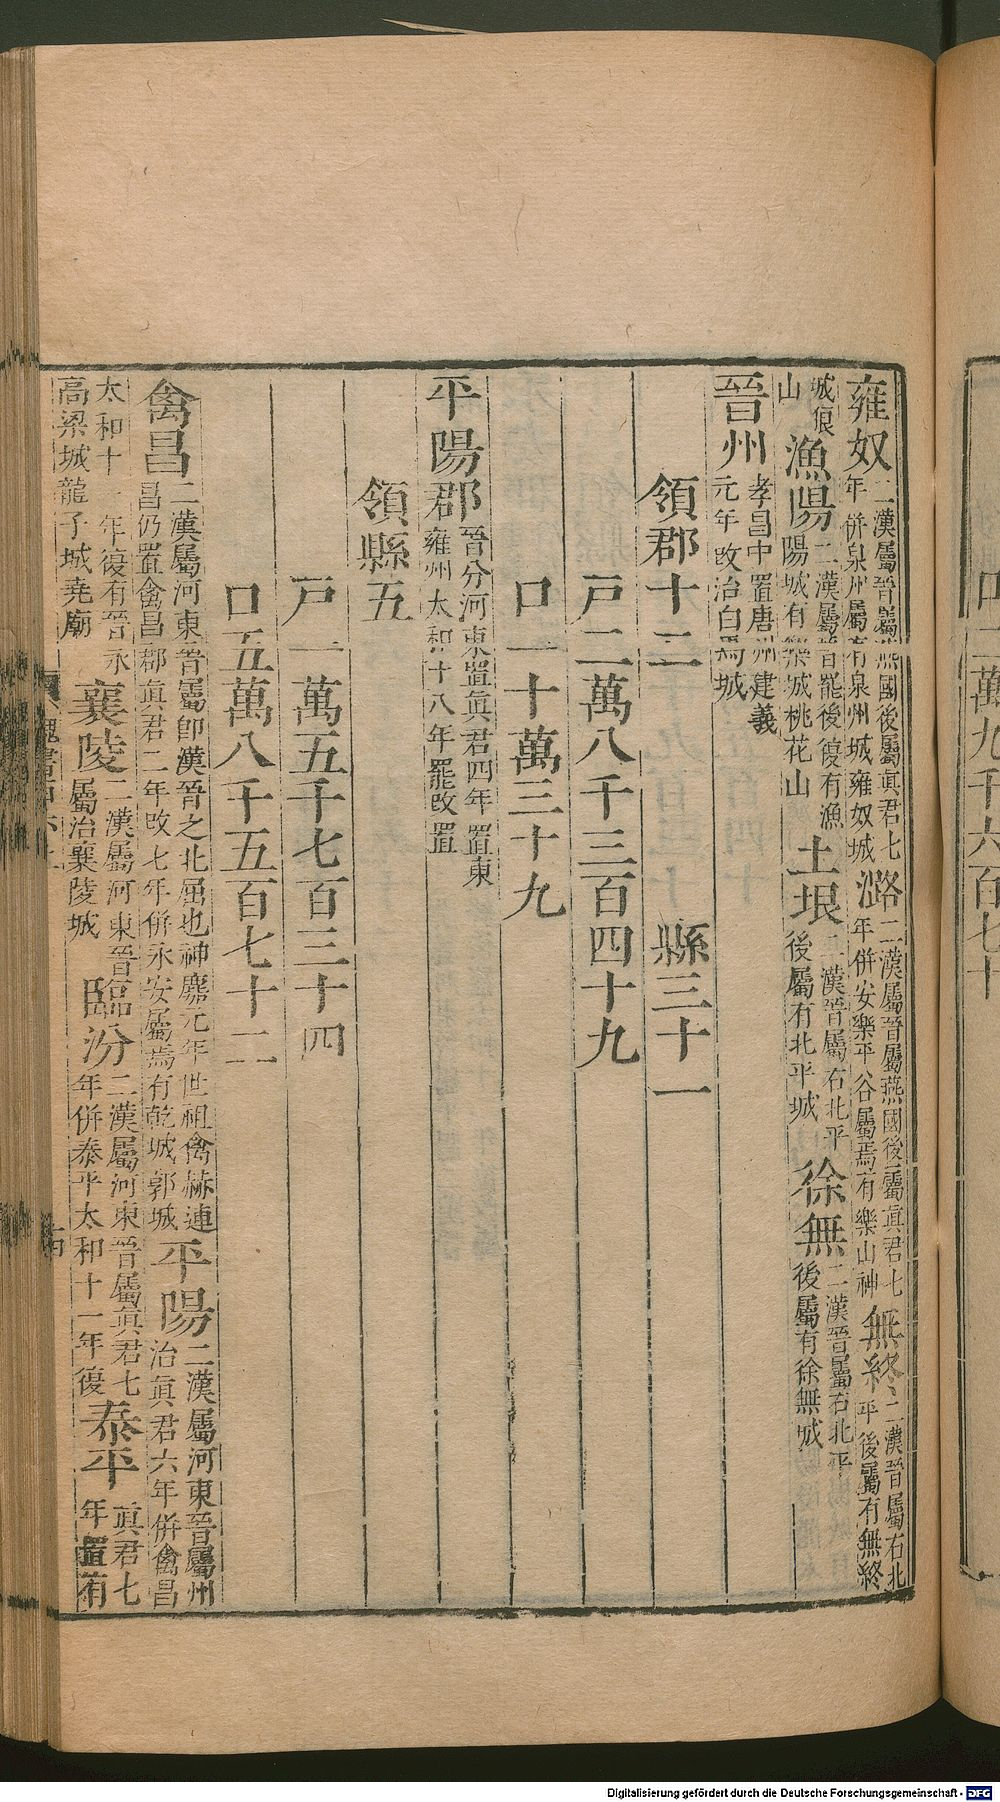 雍奴二漢屬晉屬燕國後屬真君七年併泉州屬有泉州城雍奴城潞二漢屬晉屬燕國後屬真君七年併安樂平谷屬焉有樂山神無終二漢晉屬右北平後屬有無終
城狼山漁陽二漢屬晉罷後復有漁陽城有樂城桃花山土垠二漢晉屬右北平後屬有北平城徐無二漢晉屬右北平後屬有徐無城
晉州孝昌中置唐州建義元年改治白馬城
領郡十二 縣三十一
戸二萬八千三百四十九
口一十萬三十九
平陽郡晉分河東置真君四年置東雍州太和十八年罷改置
領縣五
戸一萬五千七百三十四
口五萬八千五百七十二
禽昌二漢屬河東晉屬卽漢晉之北屈也神䴥元年世祖禽赫連昌仍置禽昌郡真君二年改七年併永安屬焉有乾城郭城平陽二漢屬河東晉屬州治真君六年併禽昌
太和十一年復有晉永高梁城龍子城堯廟襄陵二漢屬河東晉屬治襄陵城臨汾二漢屬河東晉屬真君七年併泰平太和十一年復泰平真君七年置有
口二萬九千六百七十
Digitalisierung gefördert durch die Deutsche Forschungsgemeinschaft - DFG